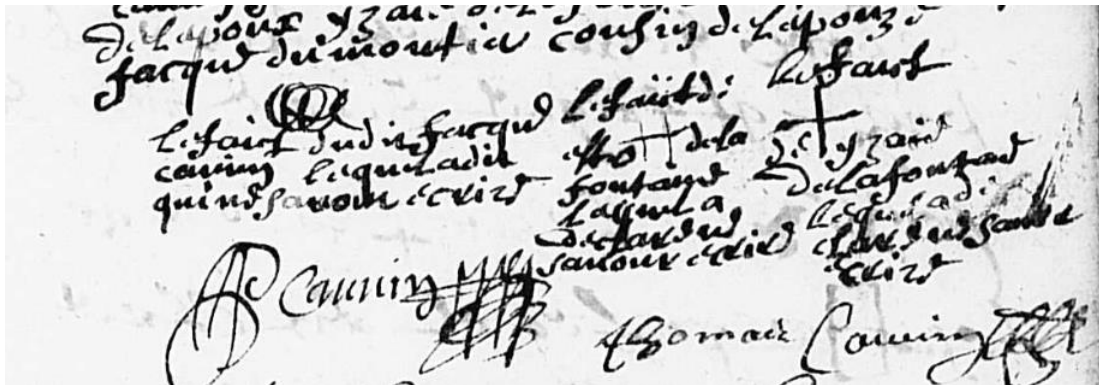 de lespoux yzaie
Jacques dumoutier cousin de lespouze
le faict dudit Jacques
cauvin lequel a dit
qui ne savoir ecrire
le faict de
de la
fontaine
laquelle a
declare ne
savoir ecrire
le faict
de yzaie
de lafontaine
lequel a de
clare ne savoir
ecrire
Cauvin
thomas Cauvin